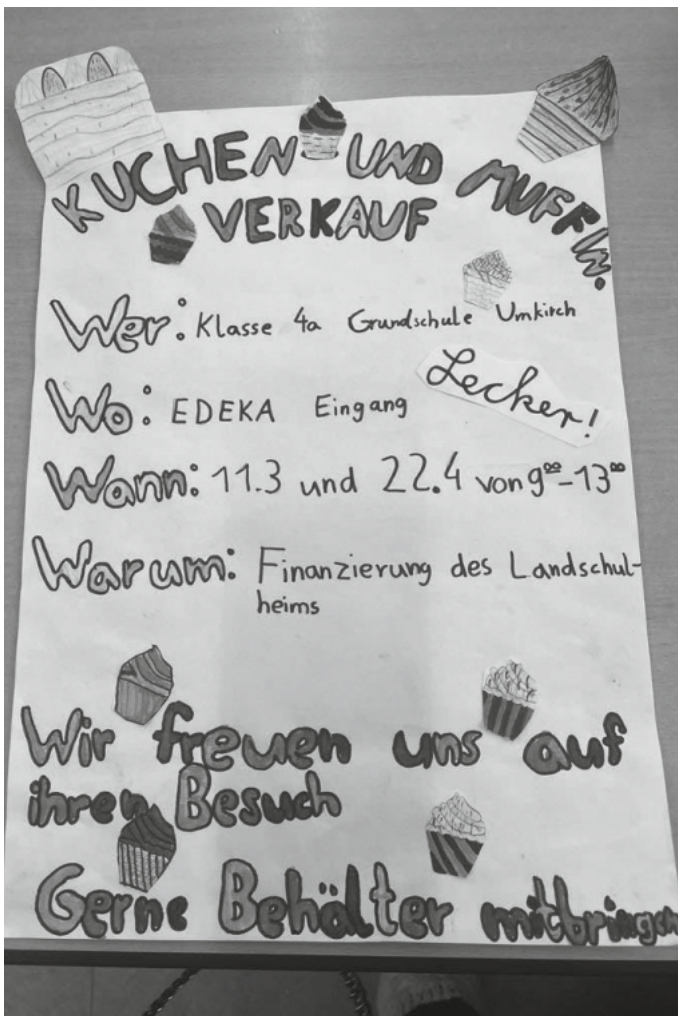 KUCHEN UND MUFFIN.
VERKAUF
Wer: Klasse 4a Grundschule Umkirch
Lecker!
Wo: EDEKA Eingang
Wann: 11.3 und 22.4 von 9⁰⁰-13⁰⁰
Warum: Finanzierung des Landschul-
heims
Wir freuen uns auf
ihren Besuch
Gerne Behälter mitbringen